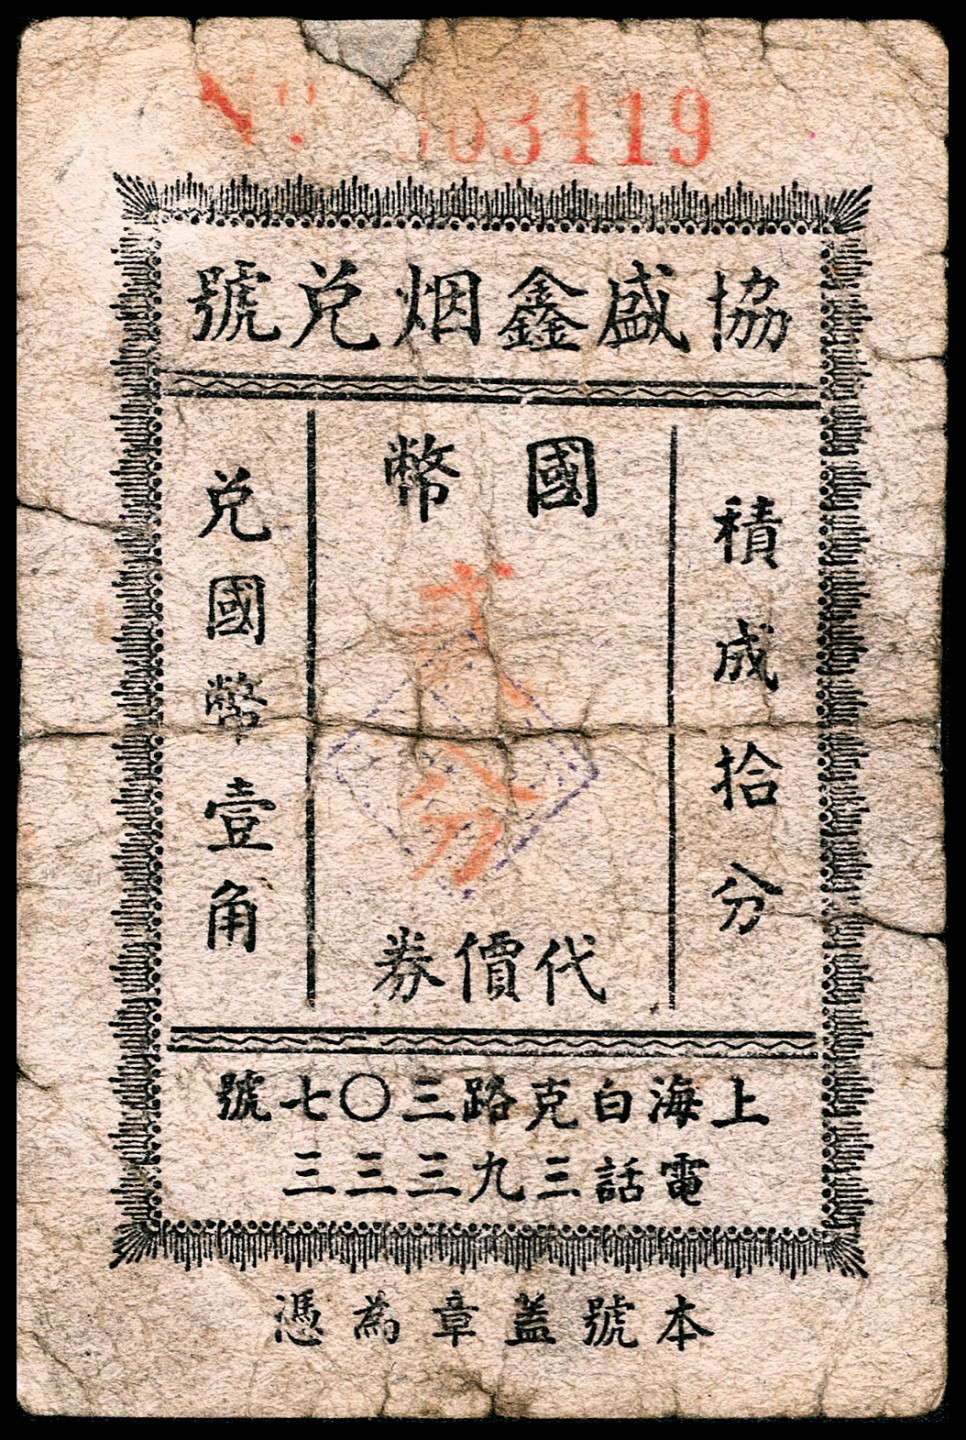 03419
協盛鑫烟兌號
國幣
貳分
代價券
積成拾分
兌國幣壹角
上海白克路三〇七號
電話三九三三三
本號蓋章為憑